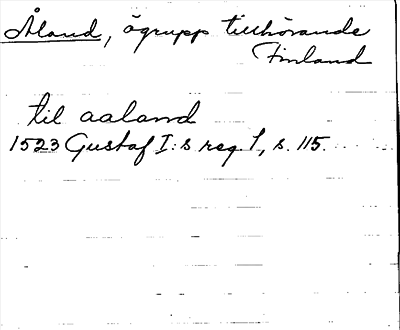 Åland, ögrupp tillhörande
Finland
til aaland
1523 Gustaf I:s reg 1, s. 115.